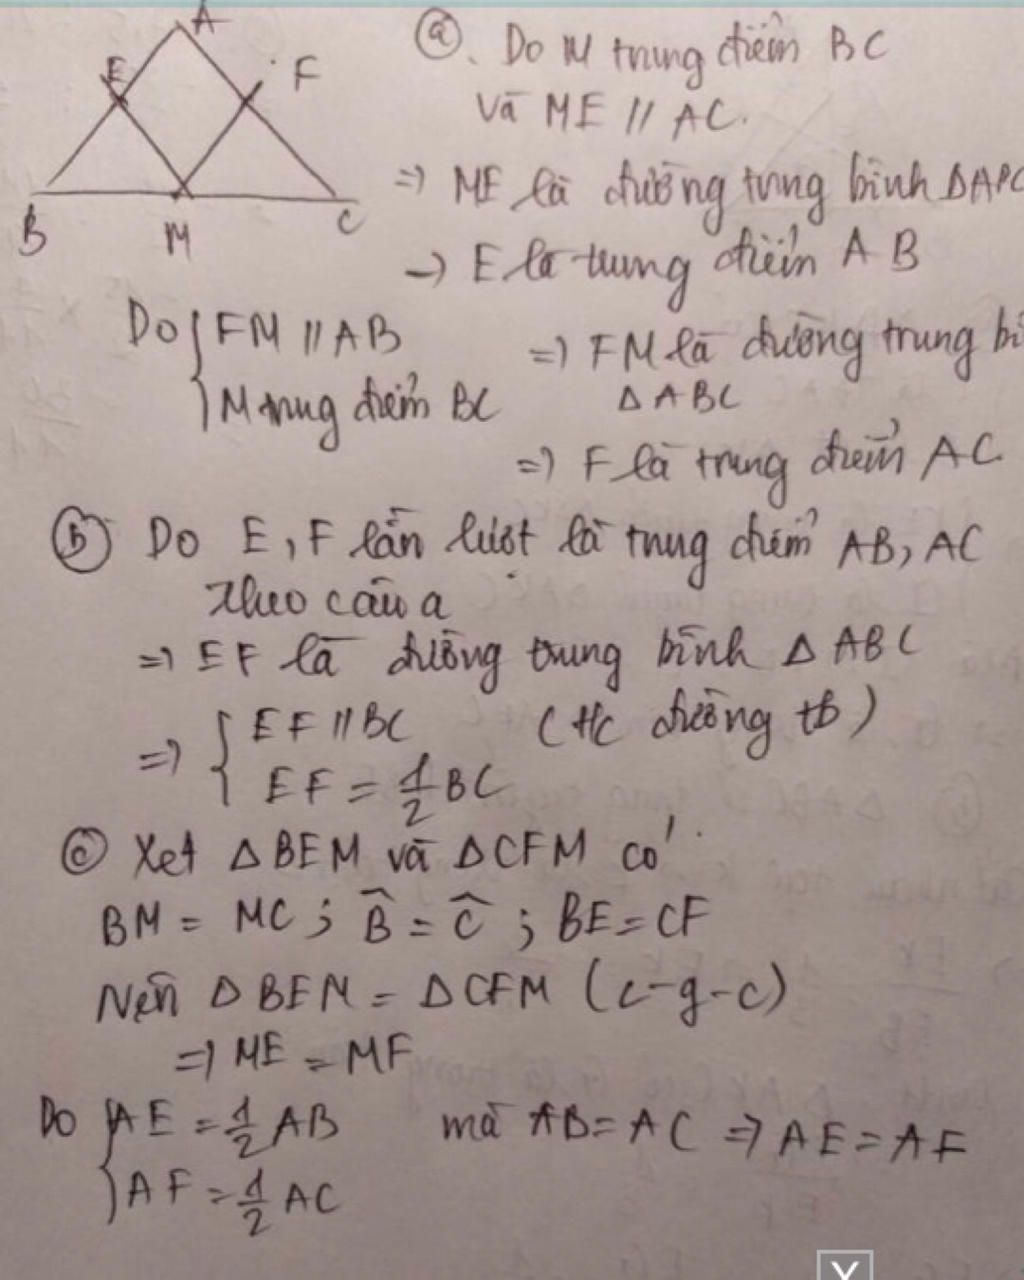 A
E
F
B
M
C
ⓐ. Do M trung điểm BC
và ME // AC.
=> ME là đường trung bình ΔABC
-> E là trung điểm AB
Do { FM // AB => FM là đường trung bì
M trug điểm BC ΔABC
=> F là trung điểm AC
ⓑ Do E, F lần lượt là trug điểm AB, AC
theo câu a
=> EF là đường trung bình ΔABC
=> { EF // BC (t/c đường tb)
EF = 1/2 BC
ⓒ Xét ΔBEM và ΔCFM có
BM = MC ; B̂ = Ĉ ; BE = CF
Nên ΔBEM = ΔCFM (c-g-c)
=> ME = MF
Do { AE = 1/2 AB mà AB = AC => AE = AF
AF = 1/2 AC